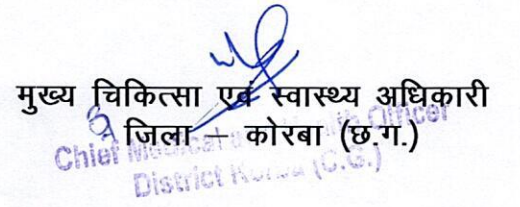 मुख्य चिकित्सा एवं स्वास्थ्य अधिकारी
जिला – कोरबा (छ.ग.)
Chief Medical and Health Officer
District Korba (C.G.)